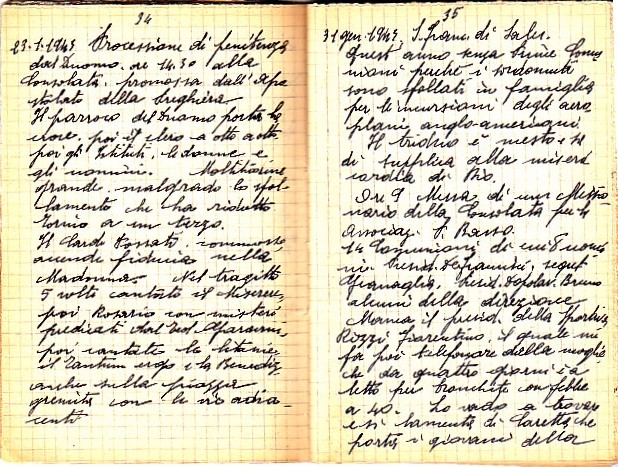 34
23.1.1943. Processione di penitenza
dal Duomo. ore 14.30 alla
Consolata. promossa dall'Apo
stolato della Preghiera.
Il parroco del Duomo porta la
croce. poi il clero a otto a otto
poi gli Istituti. le donne e
gli uomini. Moltitudine
grande. malgrado lo sfol-
lamento che ha ridotto
Torino a un terzo.
Il Card. Fossati. commosso
accende fiducia nella
Madonna. Nel tragitto
5 volte cantato il Miserere,
poi Rosario con misteri
predicati dal Teol.
poi cantate le litanie.
il Tantum ergo e la Benediz
anche sulla piazza
gremita con le vie adia-
centi
35
31 gen. 1943. S. Franc. di Sales.
Quest'anno senza Comu
nioni perché i sordomuti
sono sfollati in famiglia
per le incursioni degli aero
plani anglo-americani.
Il triduo è mesto: si sa
di supplica alla miseri
cordia di Dio.
Ore 9 Messa di un Missio
nario della Consolata per gli
Associaz. P. Basso.
14 Comunioni di cui 8 uomi
ni. Presid. segret.
Presid. Dopolav. Bruno
alcuni della direzione
Manca il presid. della Sportiva
Rozzi Fiorentino. il quale mi
fa poi telefonare dalla moglie
che da quattro giorni è a
letto per bronchite con febbre
a 40. Lo vado a trovare
e si lamenta di Caretta che
porta i giovani della